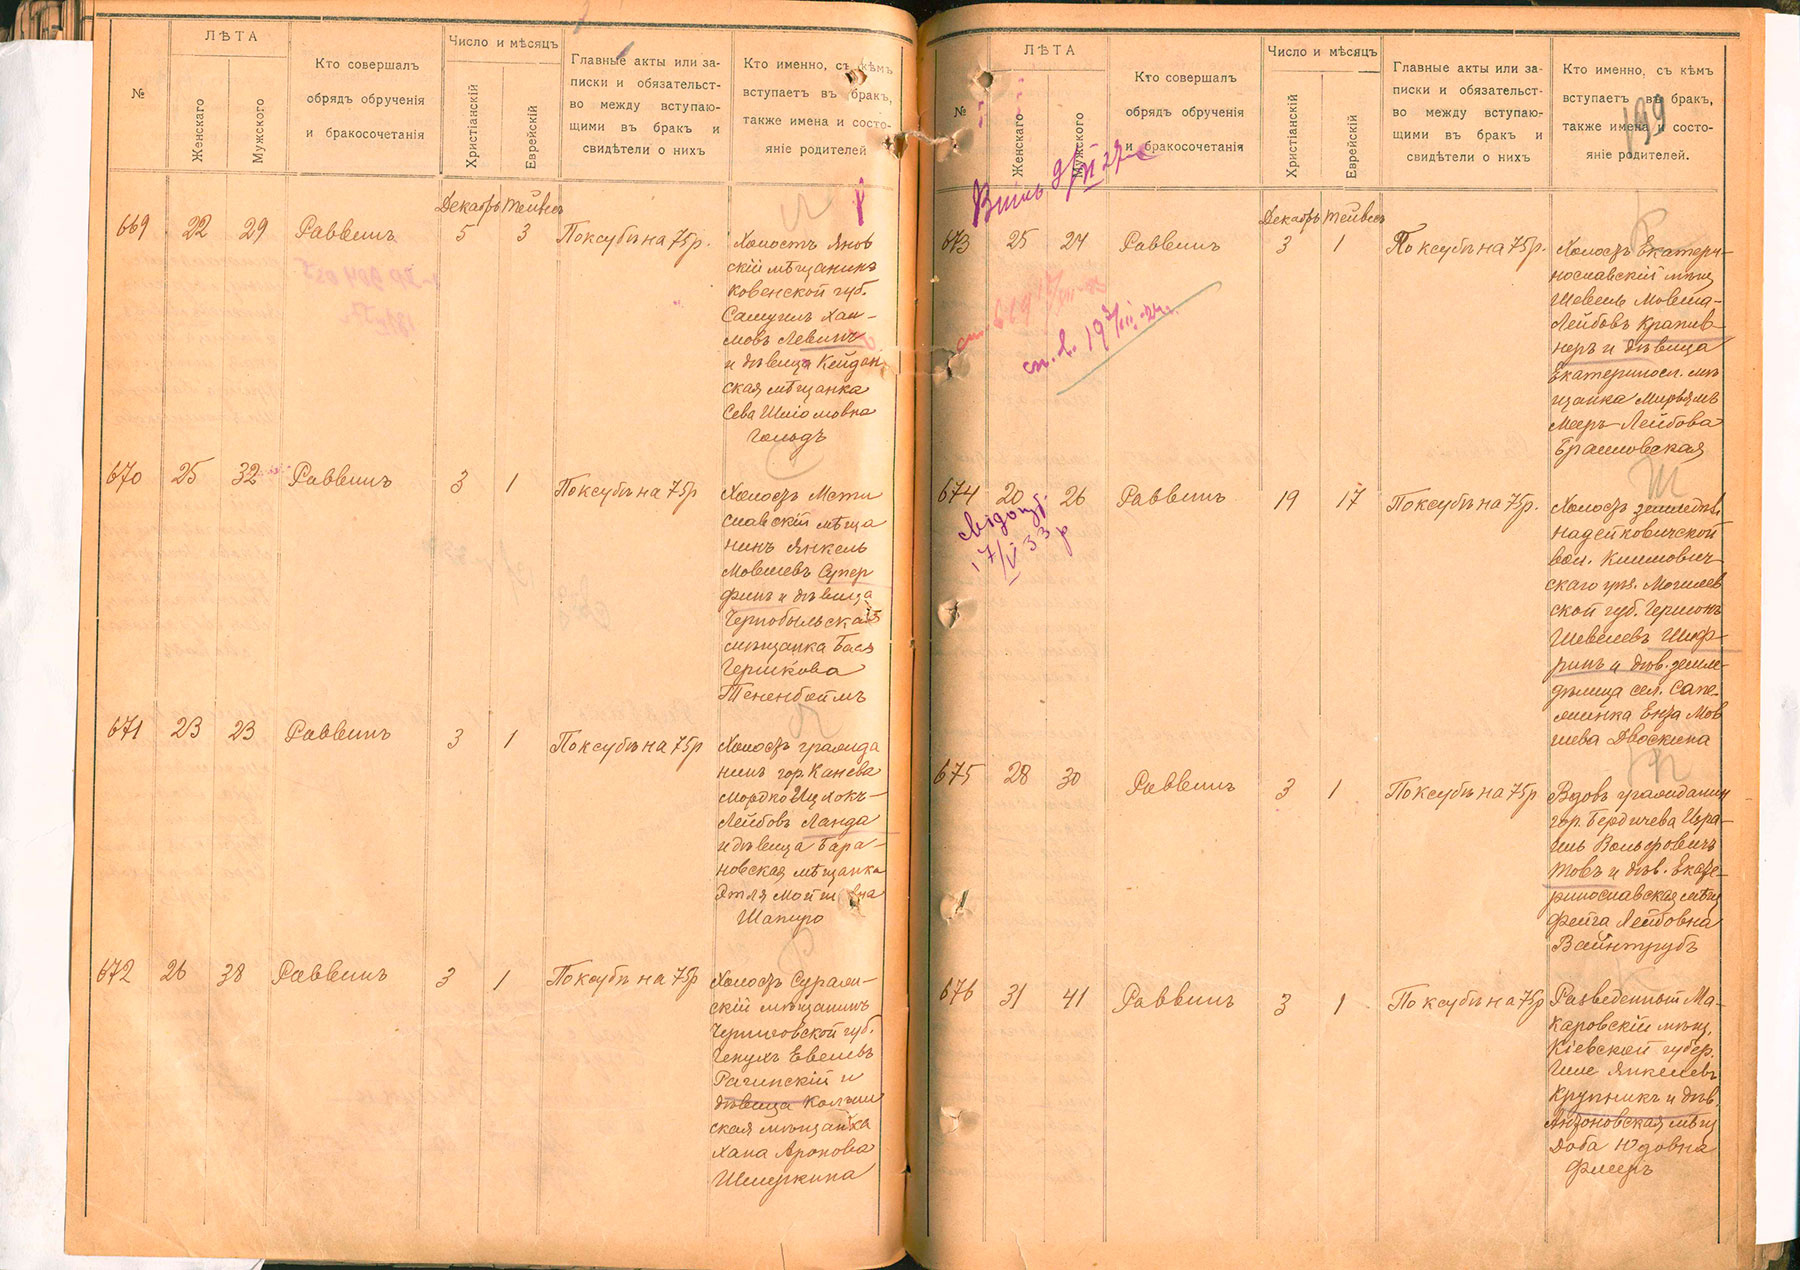 №
ЛѢТА
Женскаго
Мужского
Кто совершалъ
обрядъ обрученія
и бракосочетанія
Число и мѣсяцъ
Христіанскій
Еврейскій
Главные акты или за-
писки и обязательст-
во между вступаю-
щими въ бракъ и
свидѣтели о нихъ
Кто именно, съ кѣмъ
вступаетъ въ бракъ,
также имена и состо-
яніе родителей
Декабрь Тейвесъ
669 22 29 Раввинъ 5 3 По ксубѣ на 75 р.
Холостъ Янов
скій мѣщанинъ
Ковенской губ.
Самуилъ Хаи-
мовъ Левинъ
и дѣвица Кейдан
ская мѣщанка
Сева Шліомовна
Гольдъ
670 25 32 Раввинъ 3 1 По ксубѣ на 75 р
Холостъ Мсти
славскій мѣща
нинъ Янкель
Мовшевъ Супер
финъ и дѣвица
Чернобыльская
мѣщанка Бася
Гершкова
Тененбоймъ
671 23 23 Раввинъ 3 1 По ксубѣ на 75 р
Холостъ гражда
нинъ гор. Канева
Мордко Ицхокъ-
Лейбовъ Ланда
и дѣвица Бара-
новская мѣщанка
Этля
Шапиро
672 26 38 Раввинъ 3 1 По ксубѣ на 75 р
Холостъ Сураж-
скій мѣщанинъ
Черниговской губ.
Генухъ Евелевъ
Рагинскій и
дѣвица
ская мѣщанка
Хана Аронова
Шмеркина
№
ЛѢТА
Женскаго
Мужского
Кто совершалъ
обрядъ обрученія
и бракосочетанія
Число и мѣсяцъ
Христіанскій
Еврейскій
Главные акты или за-
писки и обязательст-
во между вступаю-
щими въ бракъ и
свидѣтели о нихъ
Кто именно, съ кѣмъ
вступаетъ въ бракъ,
также имена и состо-
яніе родителей.
199
Декабрь Тейвесъ
673 25 24 Раввинъ 3 1 По ксубѣ на 75 р.
Холостъ Екатери-
нославскій мѣщ
Шевель Мовша-
Лейбовъ Крапив-
неръ и дѣвица
Екатериносл. мѣ
щанка Мирьямъ
Мееръ-Лейбова
Браиловская
674 20 26 Раввинъ 19 17 По ксубѣ на 75 р.
17/VI 33 р
Холостъ землед.
Надейковичской
вол. Климович-
скаго уѣз. Могилев
ской губ. Гершонъ
Шевелевъ Шиф-
ринъ и дѣв. земле-
дѣлица сел. Сапе-
жинка Енза Мов
шева Двоскина
675 28 30 Раввинъ 3 1 По ксубѣ на 75 р
Вдовъ гражданин
гор. Бердичева Изра-
иль Вольфовичъ
Товъ и дѣв. Екате-
ринославская мѣщ
Фейга Лейбовна
Вайнтрубъ
676 31 41 Раввинъ 3 1 По ксубѣ на 75 р
Разведенный Ма-
каровскій мѣщ.
Кіевской губер.
Янкелевъ
Крупникъ и дѣв.
мѣщ
Доба Юдовна
Фишеръ